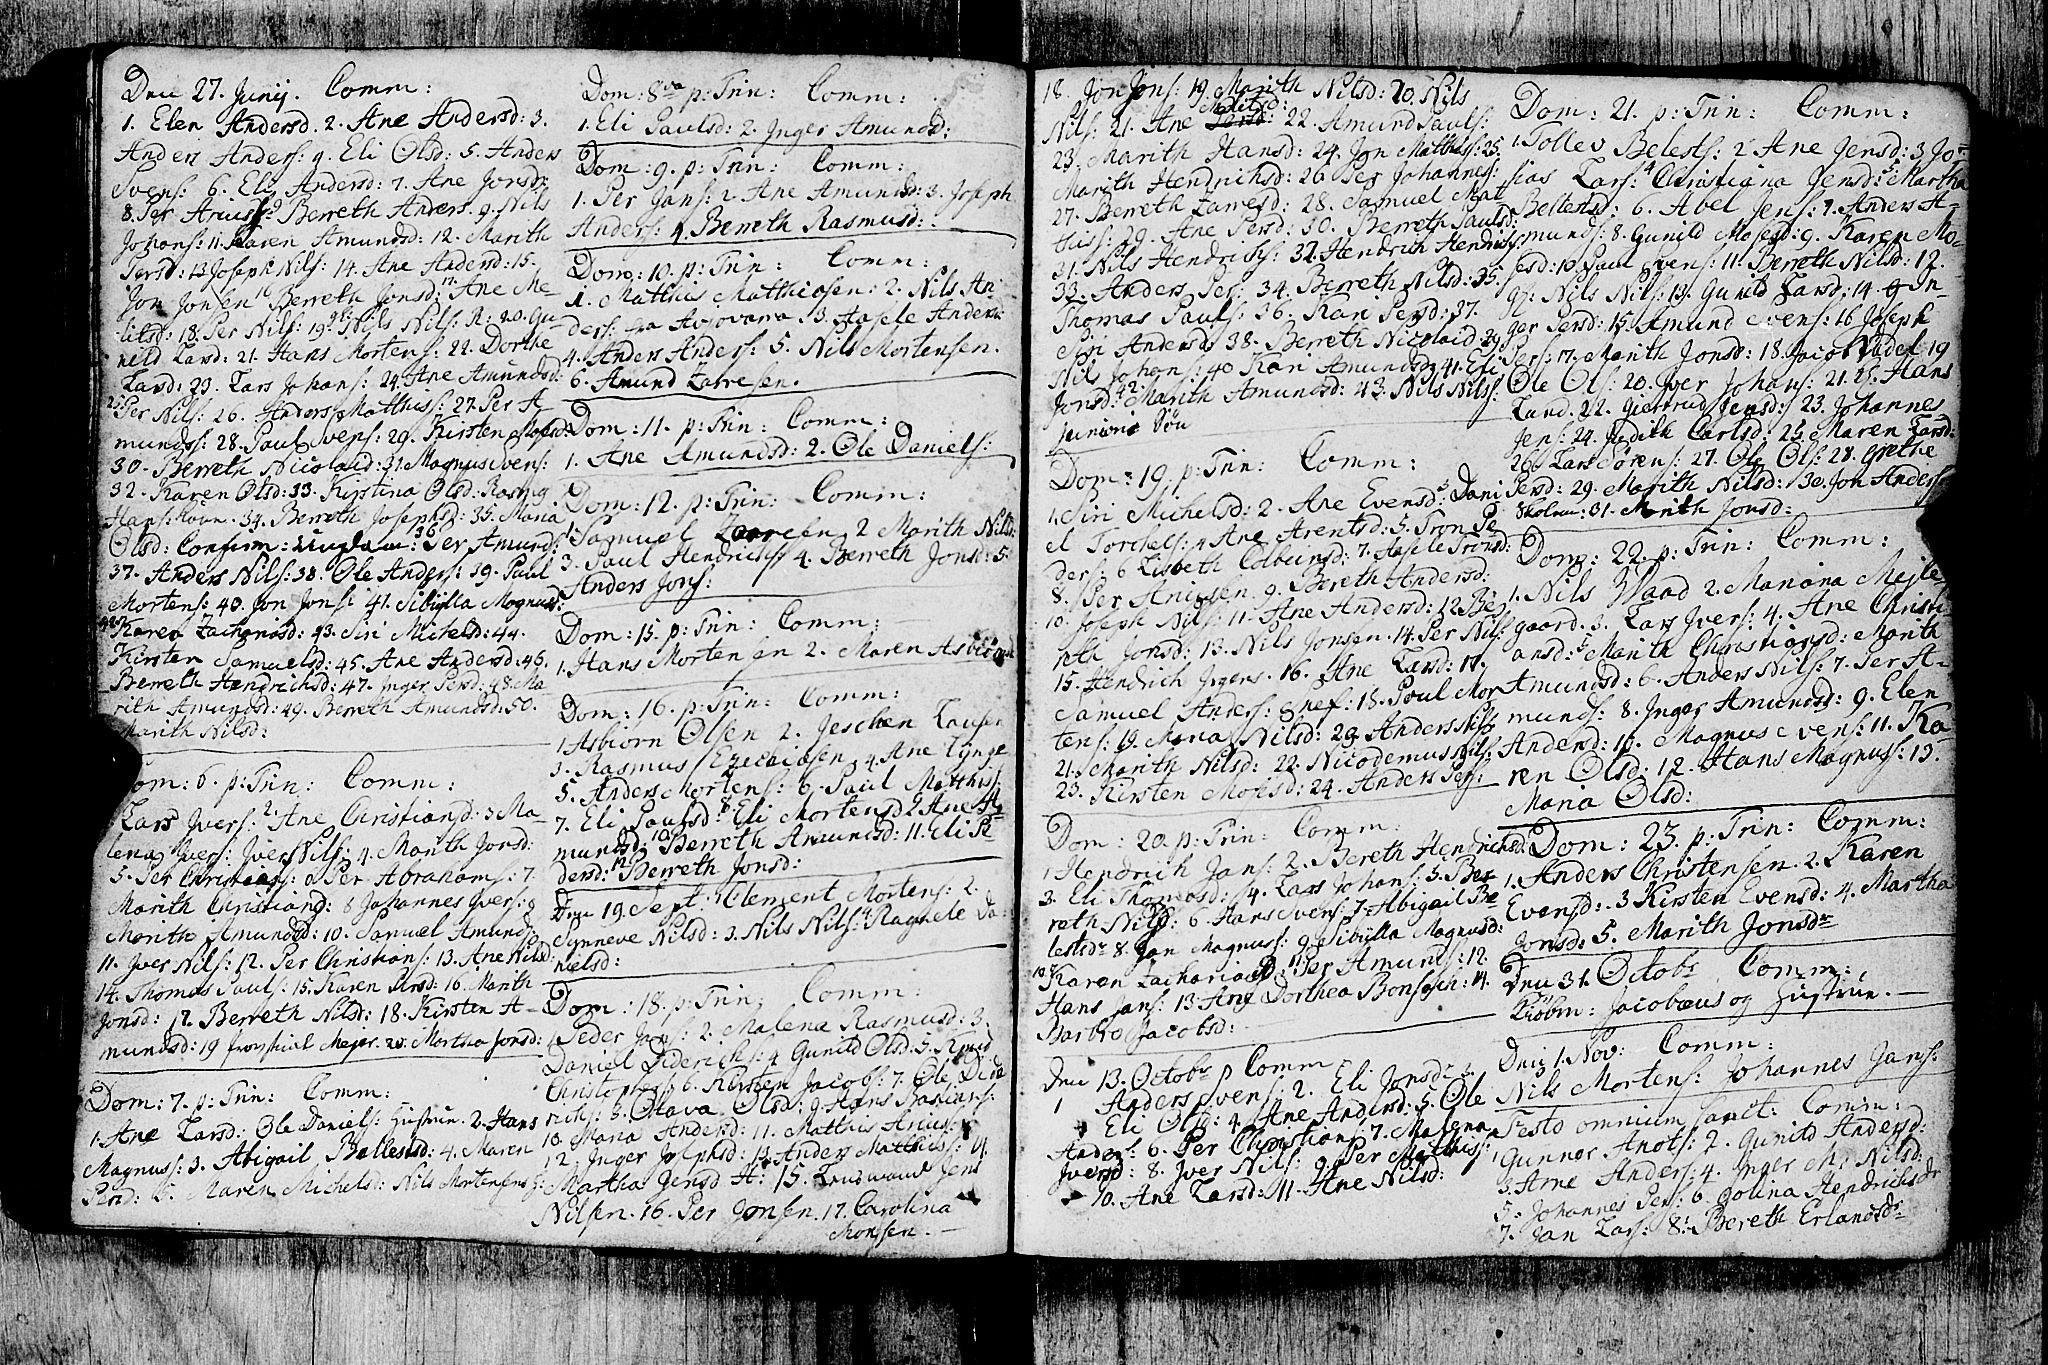 Den 27. Junij. Comm:
1. Elen Andersd. 2. Ane Andersd: 3.
Anders Anders: 4. Eli Olsd: 5. Anders
Svens: 6. Eli Andersd: 7. Ane Jonsd:
8. Per Berreth Anders. 9. Nils
Johans: 11. Karen Amundsd: 12. Marith
Persd: 13 Joseph Nils: 14. Ane Andersd: 15.
Jon Jonsen 16 Berreth Jonsd: 17. Ane Me-
litsd: 18. Per Nils: 19. Nils Nils: R: 20. Gu-
nild Larsd: 21. Hans Mortens: 22. Dorthe
Larsd: 23. Lars Johans: 24. Ane Amundsd:
25. Per Nils: 26. Anders Matthiss: 27. Per A-
munds: 28. Paul Svens: 29. Kirsten
30. Berreth Nicolaid: 31. Magnus Svens:
32. Karen Olsd: 33. Kirstina Olsd. Rasmus
Hans: 34. Berreth Josephsd: 35. Maria
Olsd: Confirm: 36 Per Amunds:
37. Anders Nils: 38. Ole Anders: 39. Paul
Mortens: 40. Jon Jons: 41. Sibylla Magnusd:
42. Karen Zachariasd: 43. Siri Michelsd: 44.
Kirsten Samuelsd: 45. Ane Andersd: 46.
Berreth Hendrichsd: 47. Inger Persd: 48. Ma-
rith Amundsd: 49. Berreth Amundsd: 50.
Marith Nilsd:
Dom: 6. p: Trin: Comm:
Lars Ivers: 2. Ane Christiansd. 3 Ma-
lena Ivers: Iver Nils: 4. Marith Jonsd:
5. Per Christians: 6 Per Abrahams: 7.
Marith Christiansd: 8 Johannes Ivers: 9
Marith Amundsd: 10. Samuel Amunds:
11. Iver Nils: 12. Per Christians: 13. Ane Nilsd:
14. Thomas Pauls: 15. Karen Persd: 16. Marith
Jonsd: 17. Berreth Nilsd: 18. Kirsten A-
mundsd: 19 20. Martha Jonsd:
Dom: 7. p: Trin: Comm:
1. Ane Larsd: Ole Daniels: Hustrue. 2. Hans
Magnuss: 3. Abigail Bellestsd: 4. Maren
Persd: 5. Maren Michelsd: Nils Mortensens
Dom: 8va p: Trin: Comm:
1. Eli Paulsd: 2. Inger Amundsd:
Dom: 9. p: Trin: Comm:
1. Per Jans: 2. Ane Amundsd: 3. Joseph
Anders: 4. Berreth Rasmusd:
Dom: 10. p: Trin: Comm:
1. Matthis Matthiasen: 2. Nils An-
ders: fra Avjovarra. 3. Aasele Andersd:
4. Anders Anders: 5. Nils Mortensen.
6. Amund Larsen.
Dom: 11. p: Trin: Comm:
1. Ane Amundsd: 2. Ole Daniels:
Dom: 12. p: Trin: Comm:
1. Samuel 2 Marith Nilsd:
3. Paul Hendrichs: 4. Berreth Jonsd: 5.
Anders Jons:
Dom: 15. p: Trin: Comm:
1. Hans Mortensen 2. Maren
Dom: 16. p: Trin: Comm:
1. Asbiørn Olsen 2. Jeschen Lausen
3. Rasmus Ezechiasen 4. Ane Lÿnge
5. Anders Mortens: 6. Paul Matthiss:
7. Eli Paulsd: 8. Eli Mortensd: 9 Ane A-
mundsd: 10. Berreth Amundsd: 11. Eli An-
dersd: 12. Berreth Jonsd:
Den 19. Sept. Clement Mortens: 2.
Synneve Nilsd: 3. Nils Nils: 4. Ragnele Da-
nielsd:
Dom: 18. p: Trin: Comm:
1. Peder Jans: 2. Malena Rasmusd: 3.
Daniel Diderichs: 4 Gunild Olsd: 5. Knud
Christophers: 6. Kirsten Jacobs: 7. Ole Dide-
richs: 8. Olava Olsd: 9 Hans Bastians:
10. Maria Andersd: 11. Matthis
12. Inger Josephsd: 13 Anders Matthiss: 14.
Martha Jensd H: 15. Jens
Nilsen. 16. Per Jonsen. 17. Carolina
Monsen.
18. Jon Jons: 19. Marith Nilsd: 20. Nils
Nils: 21. Ane Melitsd: 22. Amund Pauls:
23. Marith Hansd: 24. Jon Matthiss: 25.
Marith Hendrichsd: 26 Per Johannes:
27. Berreth Larsesd: 28. Samuel Mat-
thiss: 29. Ane Persd: 30. Berreth Paulsd:
31. Nils Hendrichs: 32. Hendrich Hendrichs:
33. Anders Pers: 34. Berreth Nilsd: 35.
Thomas Pauls: 36. Kari Persd: 37.
Siri Andersd: 38. Berreth Nicolaid: 39
Nil Johans: 40 Kari Amundsd: 41. Eli
Jonsd: 42. Marith Amundsd: 43. Nils Nils:
Junioris Søn
Dom: 19. p: Trin: Comm:
1. Siri Michelsd: 2. Ane Evensd. 3. Dani-
el Torchels: 4 Ane Arentsd: 5. Tron Pe-
ders: 6 Lisbeth Colbeinsd: 7. Aasele Tronsd:
8. Per Anissen. 9. Bereth Andersd:
10. Joseph Nils: 11. Ane Andersd: 12 Be-
reth Jonsd: 13. Nils Jonsen. 14. Per Nils:
15. Hendrich Jrgens. 16. Ane Larsd: 17.
Samuel Anders: Snef: 18. Poul Mor-
tens: 19. Maria Nilsd: 20 Anders Nils:
21. Marith Nilsd: 22. Nicodemus Nils:
23. Kirsten Mohsd: 24. Anders Pers:
Dom: 20. p: Trin: Comm:
1 Hendrich Jans: 2. Bereth Hendrichsd:
3. Eli Thomasd: 4. Lars Johans: 5. Ber-
reth Nilsd: 6 Hans Svens: 7. Abigail Be-
lestsdr 8. Jan Magnuss: 9. Sibylla Magnusd:
10. Karen Zachariasd: 11. Per Amunds: 12.
Hans Jans: 13. Ane Dorthea Bonsach: 14.
Barbro Jacobsd:
Den 13. Octobr Comm
1 Anders Svens: 2. Eli Jonsd: 3.
Eli Olsd: 4. Ane Andersd: 5. Ole
Anders: 6. Per Christians: 7. Malena
Iversd: 8. Iver Nils: 9. Per Matthiss:
10. Ane Larsd: 11. Ane Nilsd:
Dom: 21. p: Trin: Comm:
1. Tollev Belests: 2 Ane Jensd: 3 Jo-
sias Lars: 4 Christiana Jensd: 5. Martha
Bellestsd: 6. Abel Jens: 7. Anders A-
munds: 8. Gunild Mosesd: 9. Karen Mo-
sesd: 10 Paul Svens: 11. Berreth Nilsd: 12.
Nils Nils: 13. Gunild Larsd: 14. In-
ger Persd: 15. Amund Svens: 16 Joseph
Pers: 17. Marith Jonsd: 18. Jacob Wadel 19
Ole Ols: 20. Iver Johans: 21. Hans
Lund. 22. Giertrud Jensd: 23. Johannes
Jens: 24. Judith Carlsd: 25. Maren Larsd:
26. Lars Sørens: 27. Ole Ols: 28. Grethe
Persd: 29. Marith Nilsd: 30. Jon Anders:
Skolem: 31. Marith Jonsd:
Dom: 22. p: Trin: Comm:
1. Nils Waad 2. Mariana Mejle-
gaard. 3. Lars Ivers: 4. Ane Christi-
ansd: 5. Marith Christiansd: Marith
Amundsd: 6. Anders Nils: 7. Per A-
munds: 8. Inger Amundsd: 9. Elen
Andersd: 10. Magnus Svens: 11. Ka-
ren Olsd: 12. Hans Magnuss: 13.
Maria Olsd:
Dom: 23. p: Trin: Comm:
1. Anders Christensen. 2. Karen
Evensd: 3 Kirsten Evensd: 4. Martha
Jonsd: 5. Marith Jonsdr
Den 31. Octobr Comm:
Kiøbm: Jacobæus og Hustrue.
Den 1. Nov: Comm:
Nils Mortens: Johannes Jans:
Festo omnium Sanct: Comm:
1. Gunnor Anots: 2. Gunild Andersd:
3. Arne Anders: 4. Inger Nilsd:
5. Johannes Pers: 6. Golina Hendrichsdr
7. Jan Lars: 8. Bereth Erlandsdr